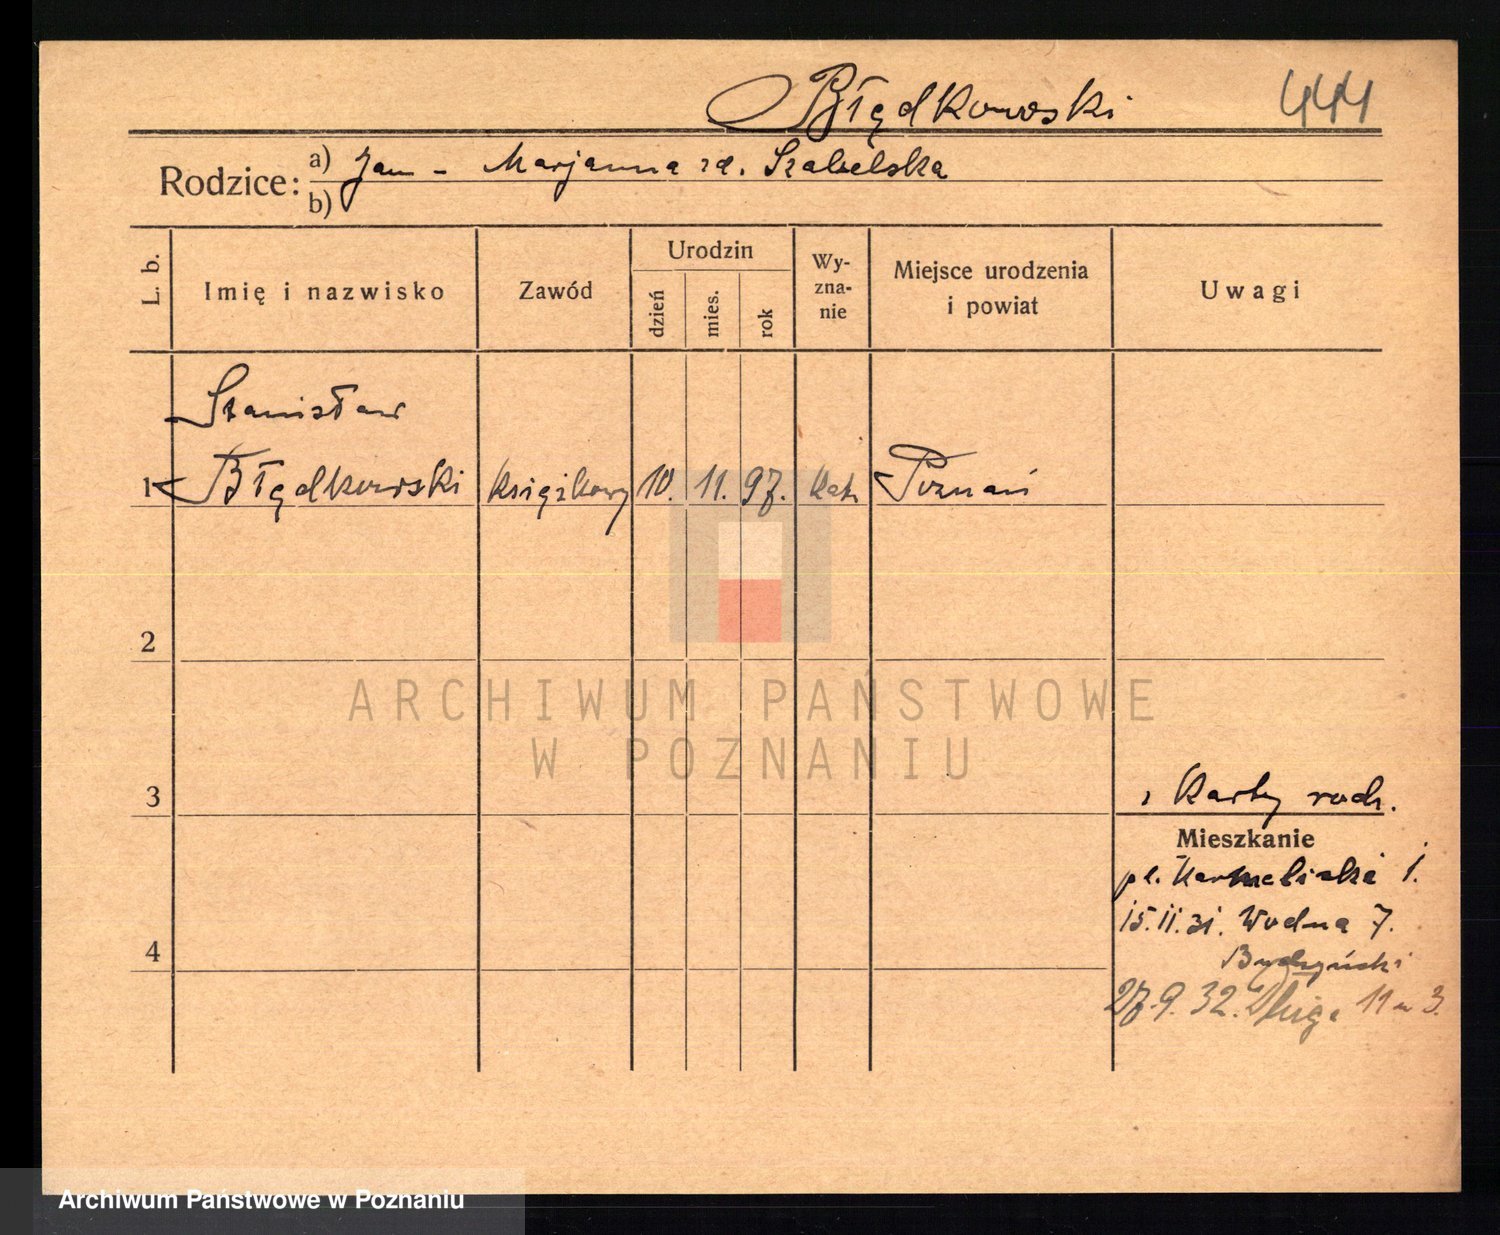 Błędkowski 444
Rodzice: a) Jan - Marjanna zd. Szabelska
b)
L. b. Imię i nazwisko Zawód Urodzin dzień mies. rok Wy-zna-nie Miejsce urodzenia i powiat Uwagi
Stanisław
1 Błędkowski książkowy 10. 11. 97. kat. Poznań
2
ARCHIWUM PAŃSTWOWE
W POZNANIU
z karty rodz.
3
Mieszkanie
pl. Karmelicki 1.
15.11.31. Wodna 7.
4
Budzyński
27.9.32. Długa 11 m 3.
Archiwum Państwowe w Poznaniu